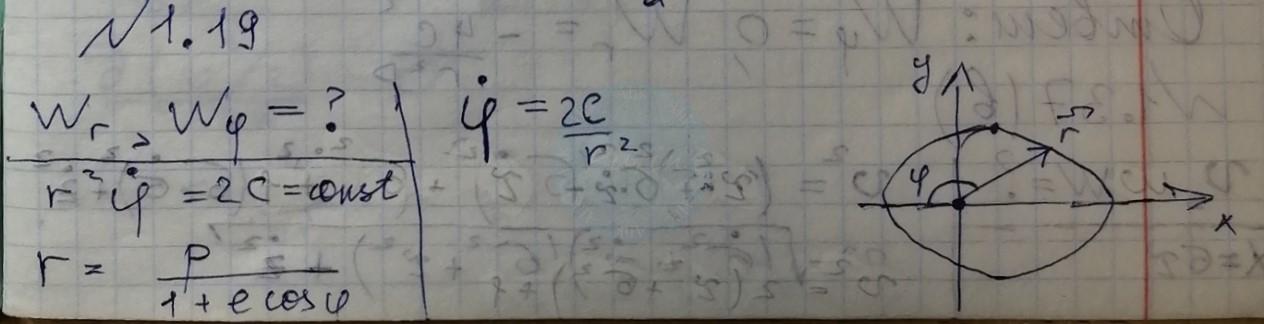 №1.19
W_r, W_φ = ?
r²φ̇ = 2C = const
r = p / (1 + e cosφ)
φ̇ = 2C / r²
y
r⃗
φ
x